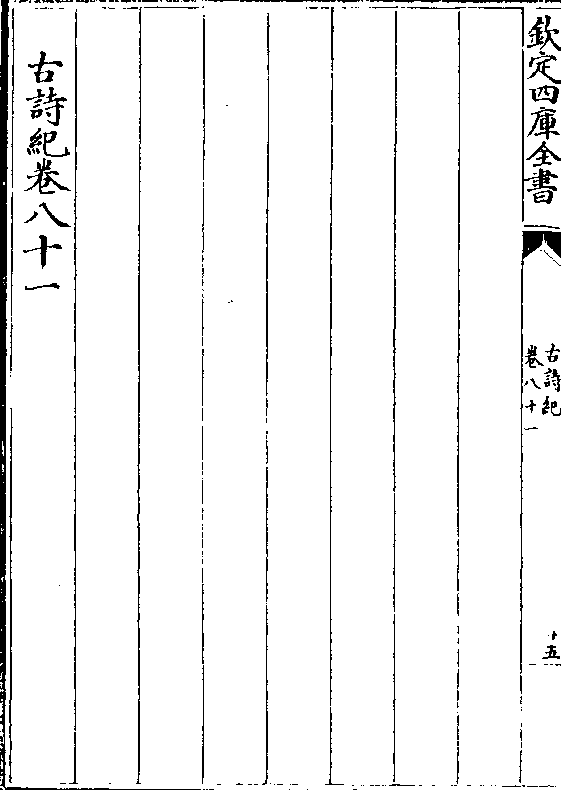 欽定四庫全書
古詩紀
卷八十一
十五
古詩紀卷八十一